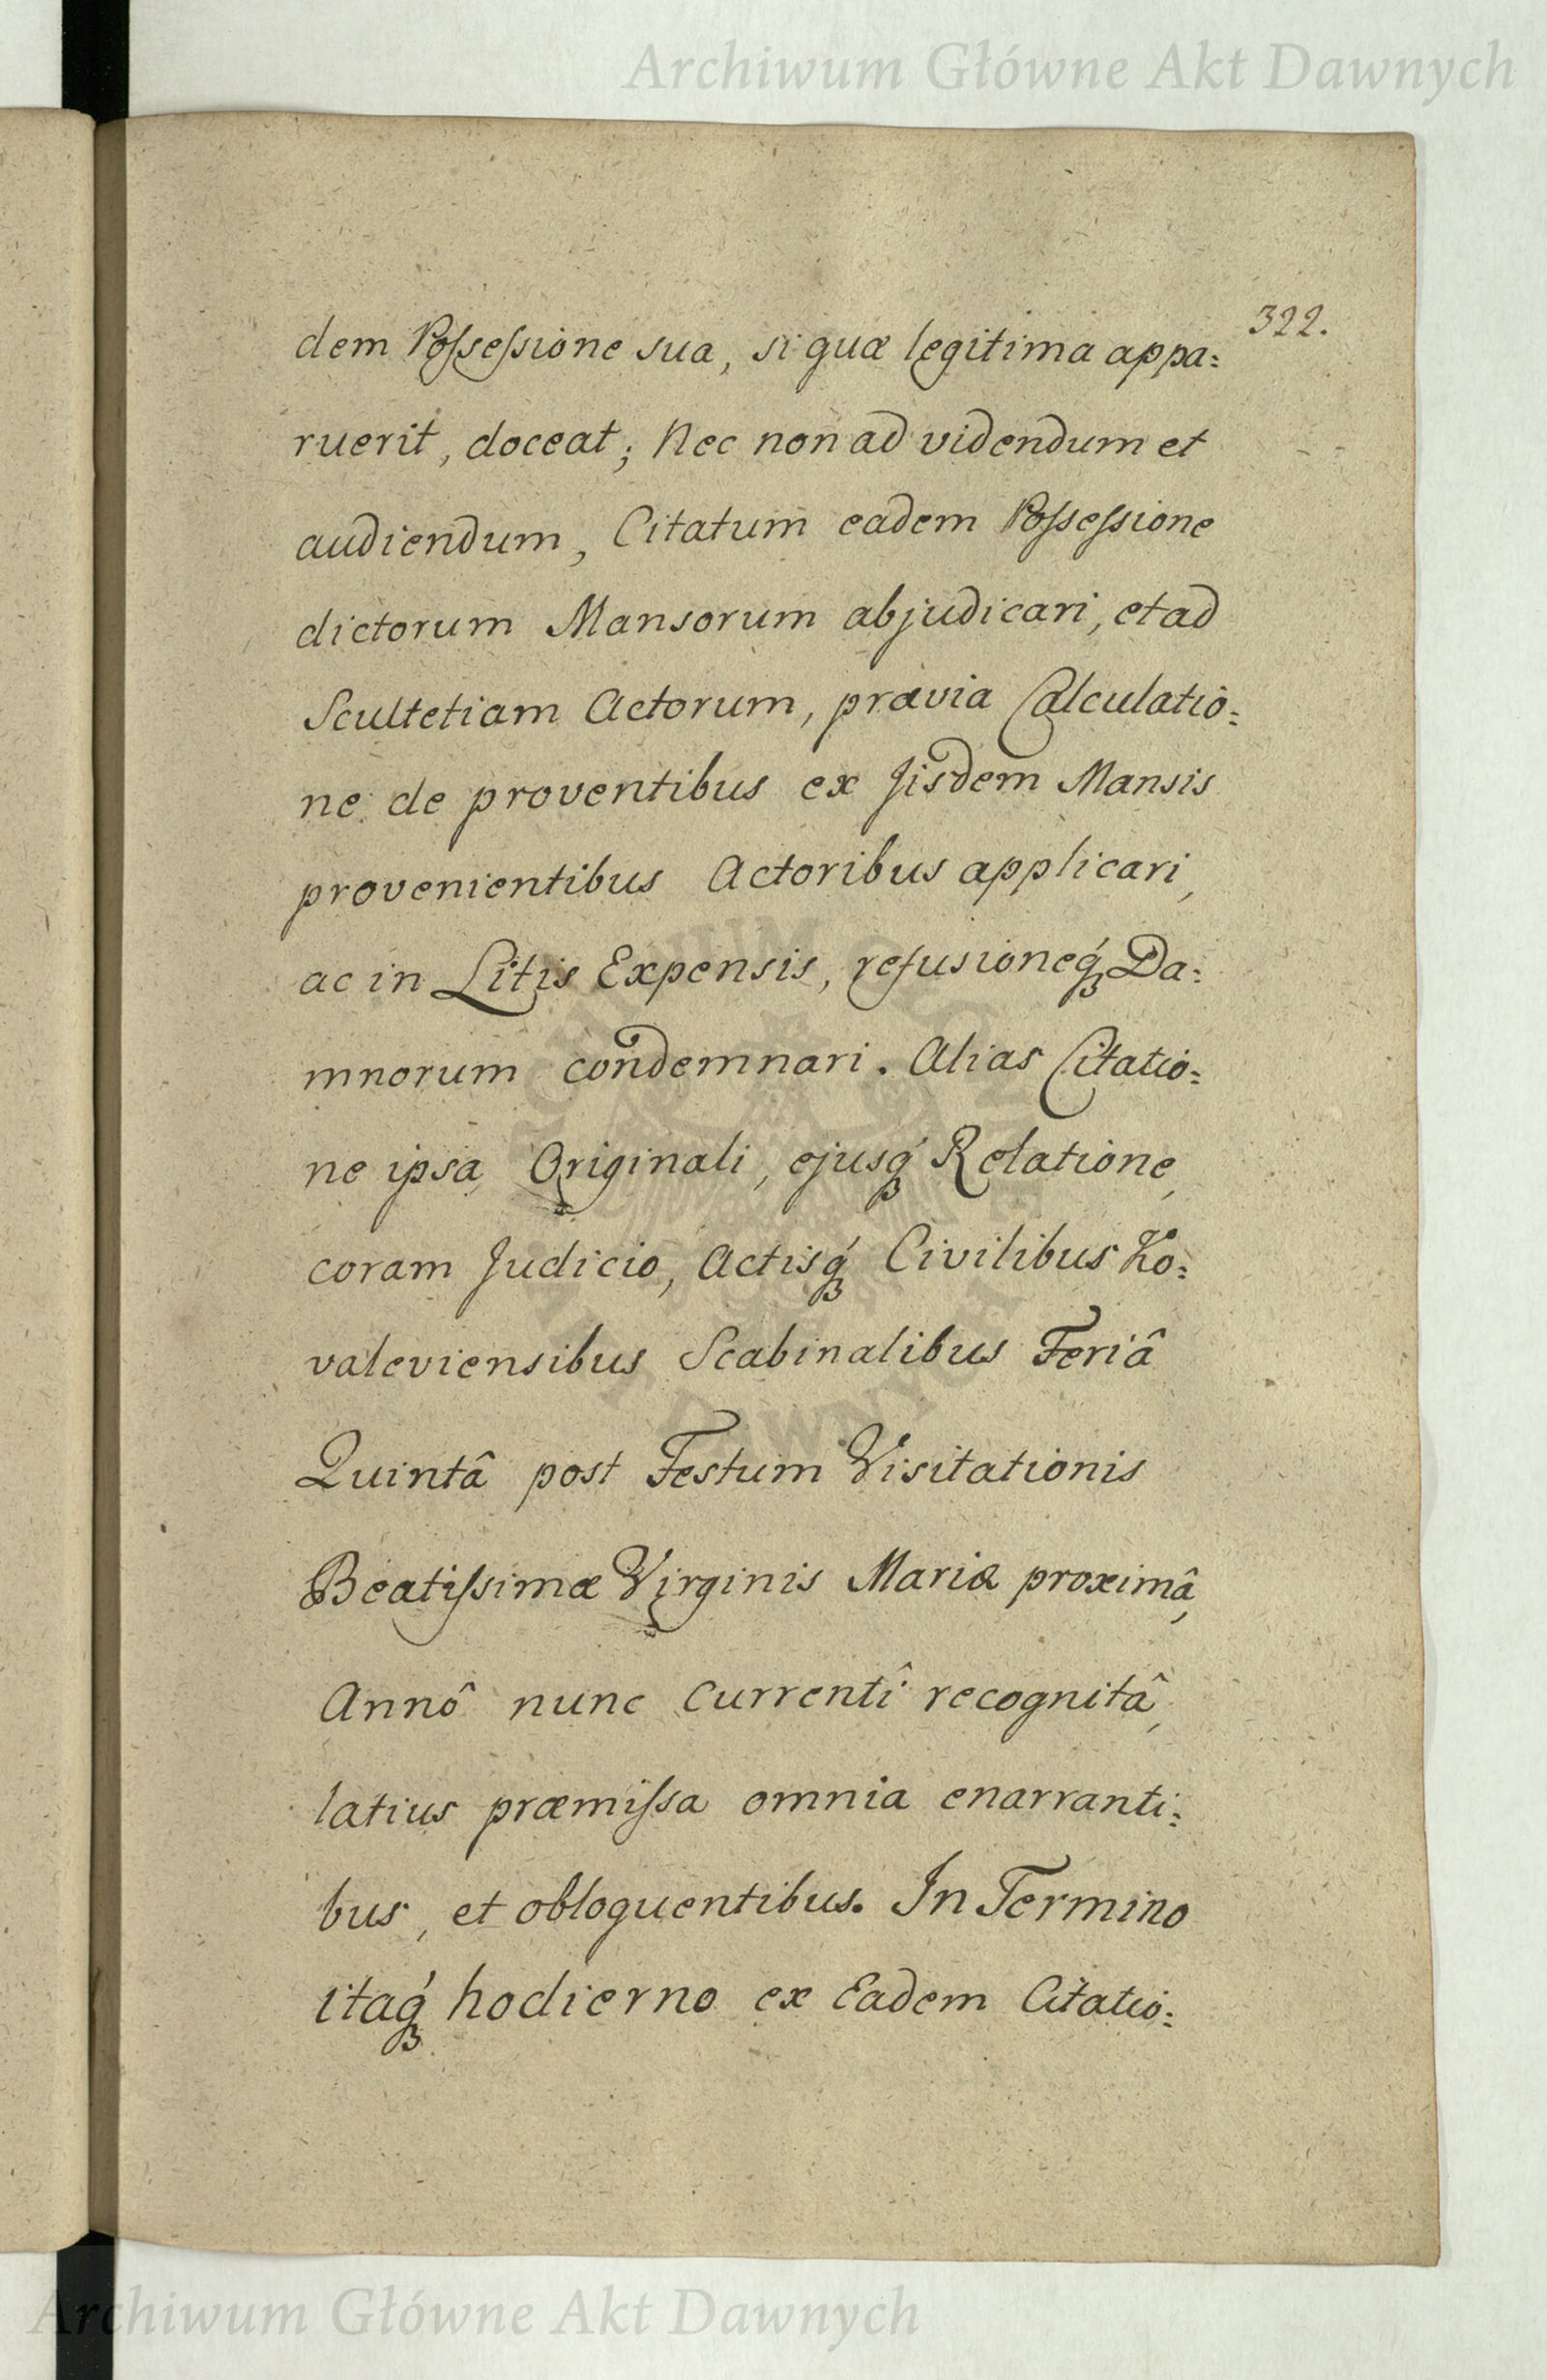 Archiwum Główne Akt Dawnych
322.
dem Poſseſsione sua, si quæ legitima appa:
ruerit, doceat; Nec non ad videndum et
audiendum, Citatum eadem Poſseſsione
dictorum Mansorum abjudicari, et ad
Scultetiam Actorum, prævia Calculatio:
ne de proventibus ex Jisdem Mansis
provenientibus Actoribus applicari,
ac in Litis Expensis, refusioneq́ꝫ Da:
mnorum condemnari. Alias Citatio:
ne ipsa Originali, ejusq́ꝫ Relatione,
coram Judicio, Actisq́ꝫ Civilibus Ko:
valeviensibus Scabinalibus Feriâ
Quintâ post Festum Visitationis
Beatiſsimæ Virginis Mariæ proximâ,
Annô nunc currentî recognitâ,
latius præmiſsa omnia enarranti:
bus, et obloquentibus. In Termino
itaq́ꝫ hodierno ex Eadem Citatio:
Archiwum Główne Akt Dawnych